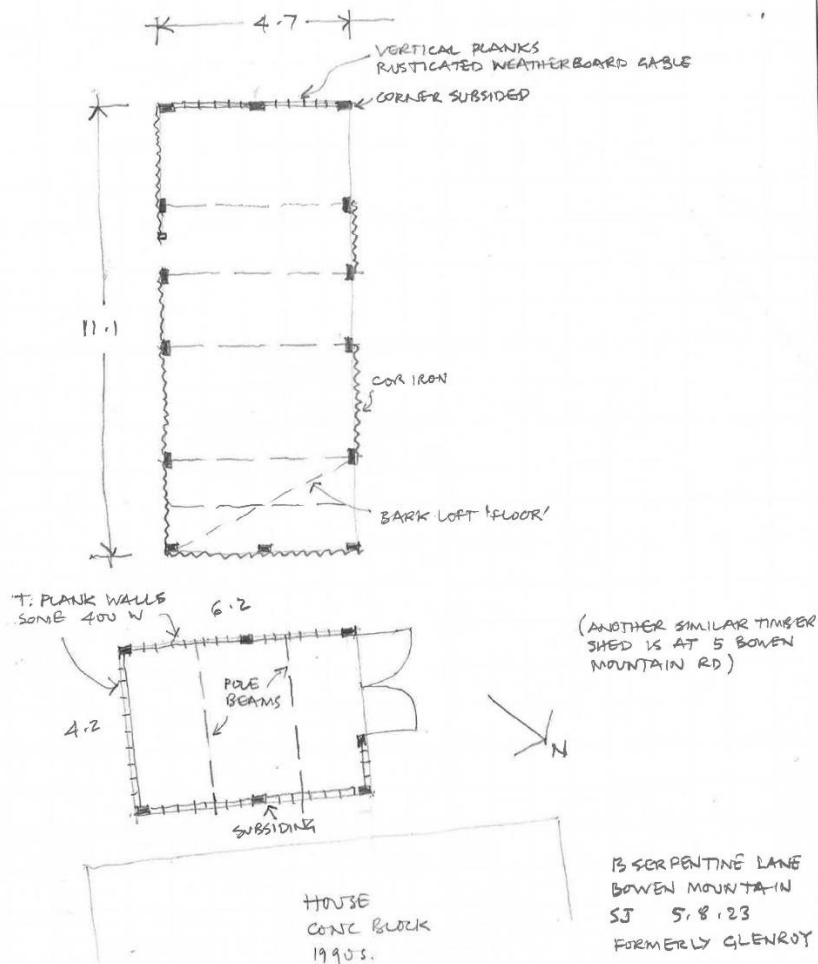 4.7
VERTICAL PLANKS
RUSTICATED WEATHERBOARD GABLE
CORNER SUBSIDED
11.1
COR IRON
BARK LOFT 'FLOOR'
T. PLANK WALLS
SOME 400 W
6.2
(ANOTHER SIMILAR TIMBER
SHED IS AT 5 BOWEN
MOUNTAIN RD)
POLE
BEAMS
4.2
N
SUBSIDING
HOUSE
CONC BLOCK
1990S.
SERPENTINE LANE
BOWEN MOUNTAIN
SJ 5.8.23
FORMERLY GLENROY